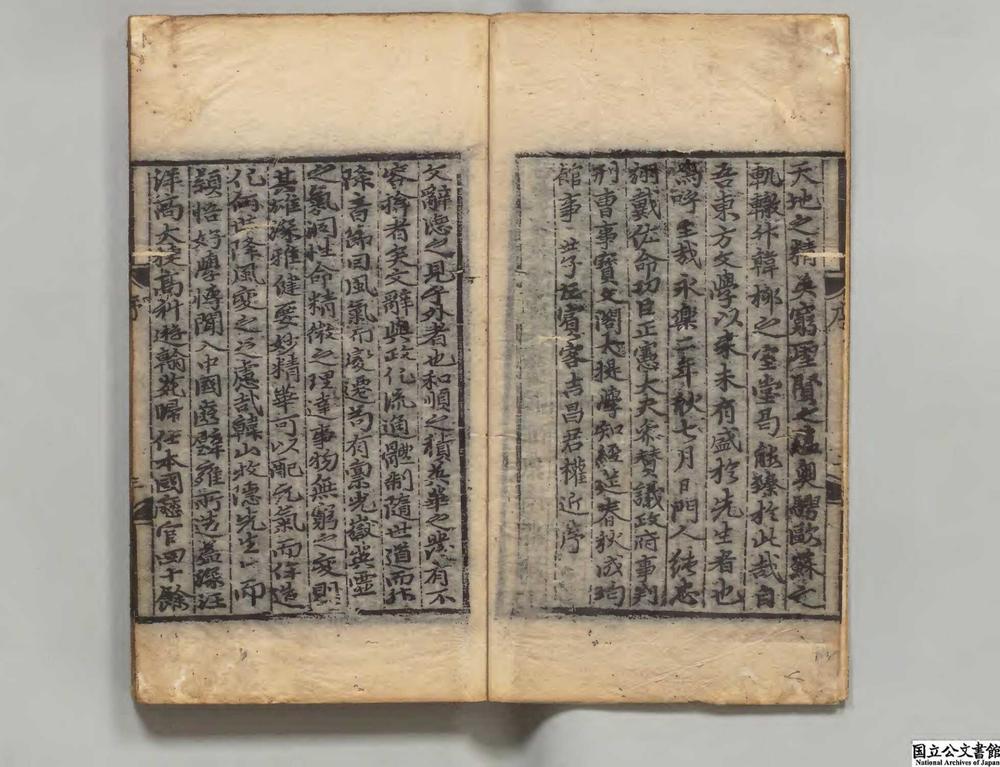 天地之精英窮聖賢之蘊奧騁歐蘇之
軌轍升韓柳之室堂曷能臻於此哉自
吾東方文學以來未有盛於先生者也
嗚呼至哉永樂二年秋七月日門人純忠
翊戴佐命功臣正憲大夫參贊議政府事判
刑曹事寶文閣大提學知經筵春秋成均
館事 世子左賓客吉昌君權近序
文辭德之見乎外者也和順之積英華之洩有不
容揜者矣文辭與政化流通體制隨世道而升
降音節因風氣而變遷苟有稟光嶽英靈
之氣洞性命精微之理達事物無窮之變則
其雄深雅健要妙精華可以配元氣而侔造
化何世降風變之足慮哉韓山牧隱先生以
穎悟好學博聞入中國遊辟雍所造益深汪
洋高大表高科遊翰苑歸仕本國歷官四十餘
序
序
国立公文書館
National Archives of Japan